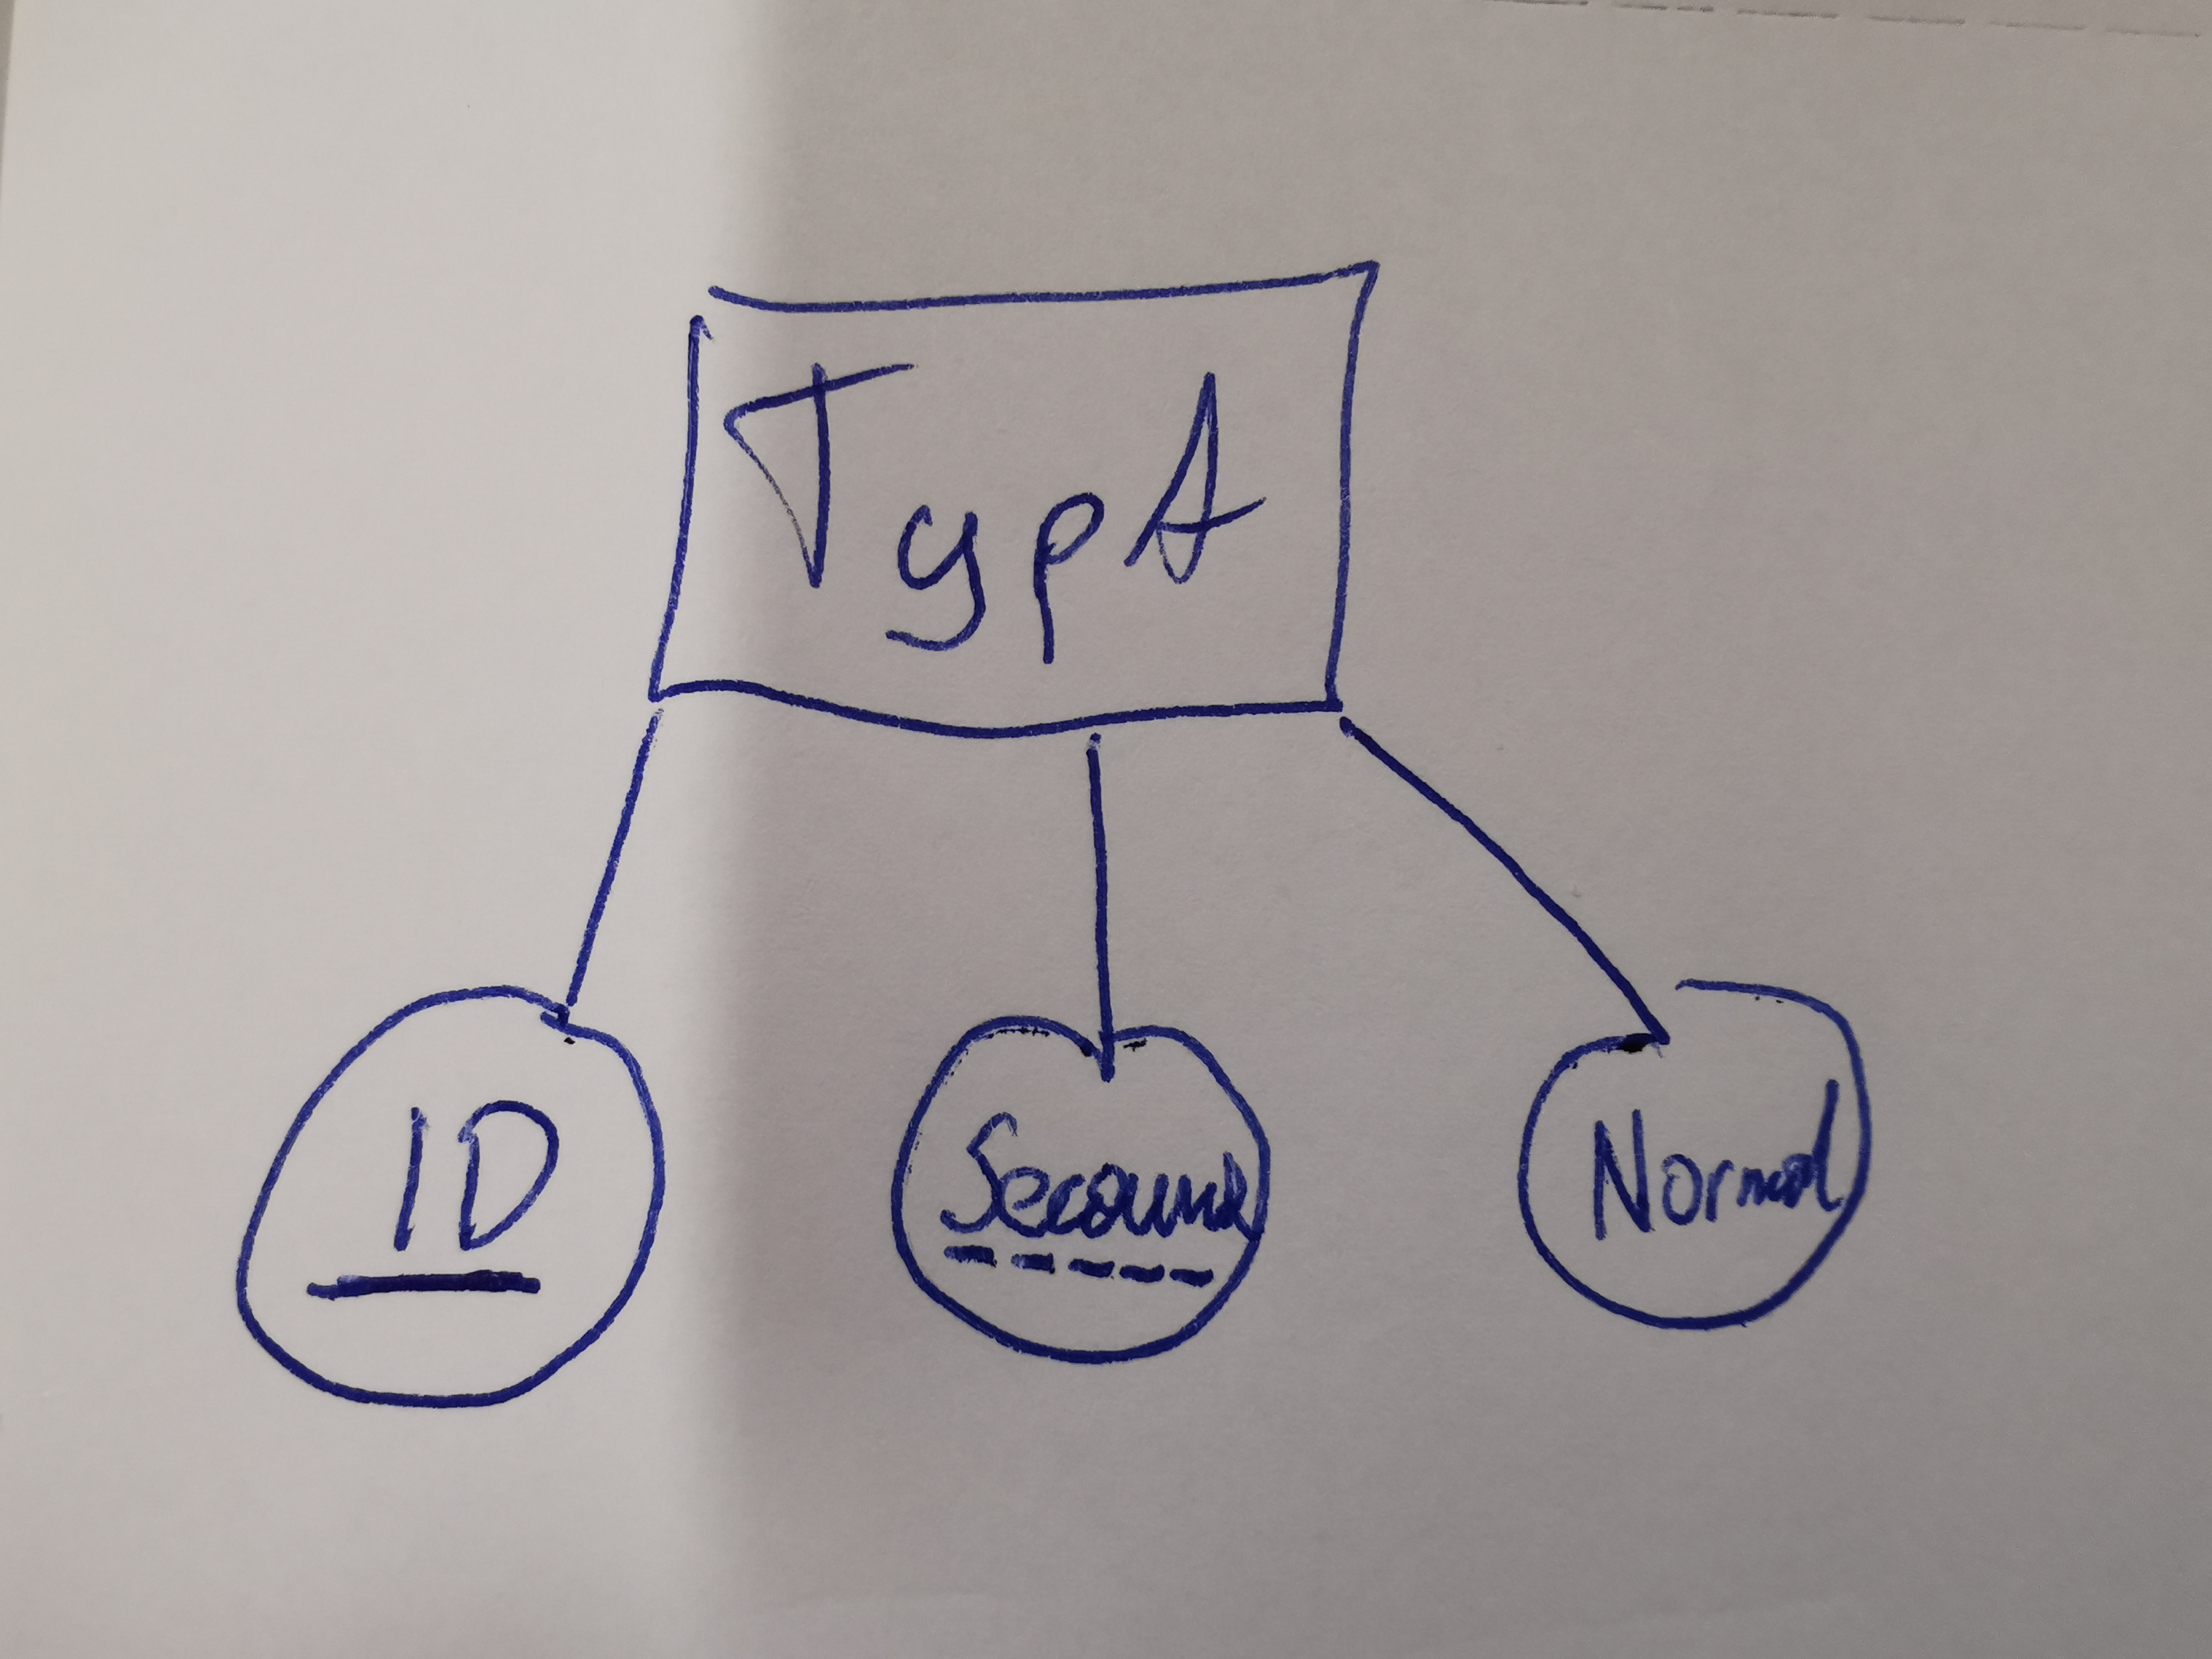 TypA
ID
Secound
Normal